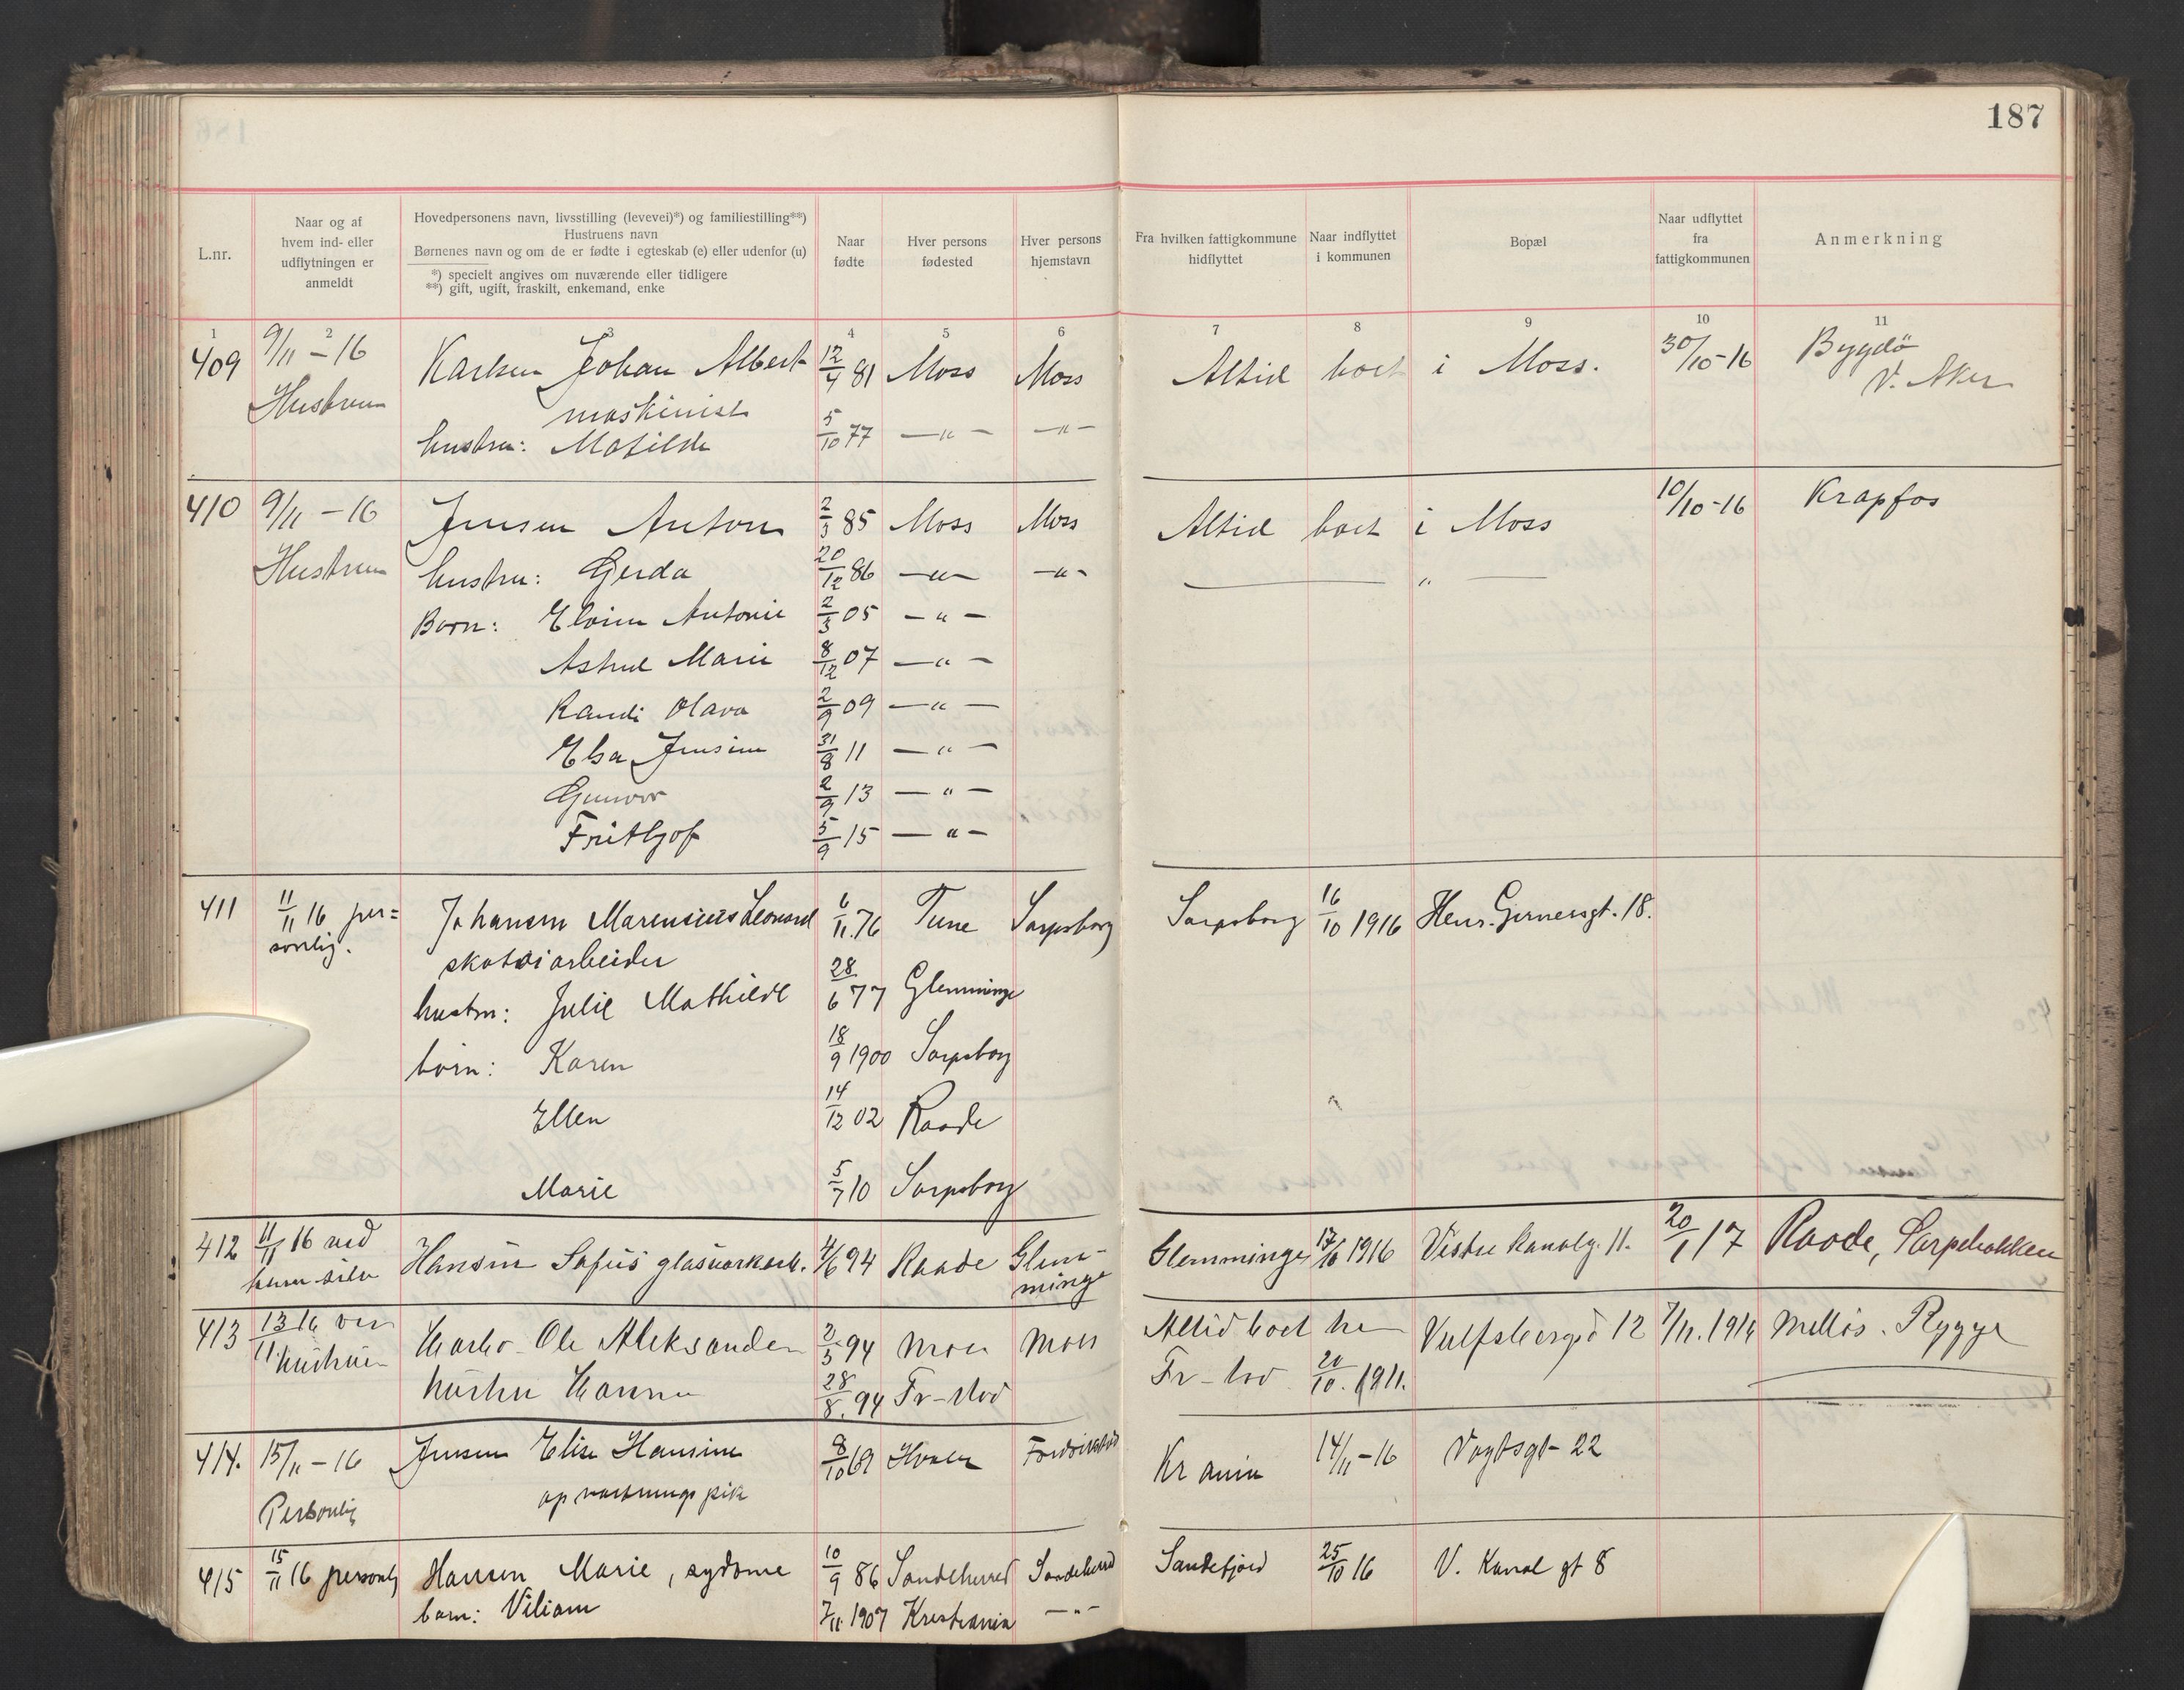 187
L.nr.
Naar og af
hvem ind- eller
udflytningen er
anmeldt
Hovedpersonens navn, livsstilling (levevei)*) og familiestilling**)
Hustruens navn
Børnenes navn og om de er fødte i egteskab (e) eller udenfor (u)
*) specielt angives om nuværende eller tidligere
**) gift, ugift, fraskilt, enkemand, enke
Naar
fødte
Hver persons
fødested
Hver persons
hjemstavn
Fra hvilken fattigkommune
hidflyttet
Naar indflyttet
i kommunen
Bopæl
Naar udflyttet
fra
fattigkommunen
Anmerkning
1 2 3 4 5 6 7 8 9 10 11
409 9/11 - 16 Karlsen Johan Albert 12/4 81 Moss Moss Altid boet i Moss. 30/10-16 Bygdø
Hustruen maskinist V. Aker
hustru: Matilde 5/10 77 — " — — " —
410 9/11 - 16 Jensen Anton 2/3 85 Moss Moss Altid boet i Moss 10/10-16 Krapfos
Hustruen hustru: Gerda 20/12 86 — " — — " — — " —
Børn: Antonie 2/3 05 — " —
Astrid Marie 8/12 07 — " —
Randi Olava 2/9 09 — " —
Elsa Jensine 31/8 11 — " —
Gunvor 2/9 13 — " —
Frithjof 5/9 15 — " —
411 11/11 16 per= Johansen Marensius Leonard 6/11. 76 Tune Sarpsborg Sarpsborg 16/10 1916 Henr. Gernersgt. 18.
sonlig. skotøiarbeider
hustru: Julie Mathilde 28/6 77 Glemminge
børn: Karen 18/9 1900 Sarpsborg
Ellen 14/12 02 Raade
Marie 5/7 10 Sarpsborg
412 11/11 16 ved Hansen Sofus glasverkarb. 4/6 94 Raade Glem- Glemminge 17/10 1916 Vestre Kanalg. 11. 20/1 17 Raade,
ham selv minge
413 13/11 16 ved Ole Aleksander 2/5 94 Moss Moss Altid boet her Vulfsbergsd 12 7/11. 1916 Melløs. Rygge
hustruen hustru Hanna 28/8. 94 Fr-stad Fr-stad 20/10. 1911.
414. 15/11 - 16 Jensen Elise Hansine 8/10 69 Hvaler Fredrikstad Kr ania 14/11-16 Vogtsgt- 22
Personlig opvartningspik
415 15/11 16 personlig Hansen Marie, sydame 10/9 86 Sandeherred Sandeherred Sandefjord 25/10 16 V. Kanal gt 8
barn: Viliam 7/11. 1907 Kristiania — " —